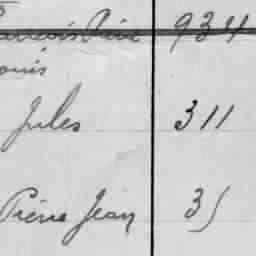 934
ouis
Jules 311
Pierre Jean 35